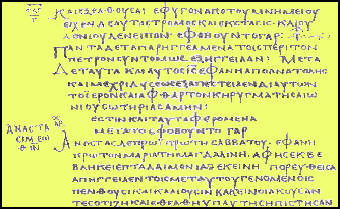 ΚΑΙ ΕΞΕΛΘΟΥΣΑΙ ΕΦΥΓΟΝ ΑΠΟ ΤΟΥ ΜΝΗΜΕΙΟΥ
ΕΙΧΕΝ ΔΕ ΑΥΤΑΣ ΤΡΟΜΟΣ ΚΑΙ ΕΚΣΤΑΣΙΣ· ΚΑΙ ΟΥ
ΔΕΝΙ ΟΥΔΕΝ ΕΙΠΟΝ· ΕΦΟΒΟΥΝΤΟ ΓΑΡ:
ΠΑΝΤΑ ΔΕ ΤΑ ΠΑΡΗΓΓΕΛΜΕΝΑ ΤΟΙΣ ΠΕΡΙ ΤΟΝ
ΠΕΤΡΟΝ ΣΥΝΤΟΜΩΣ ΕΞΗΓΓΕΙΛΑΝ: ΜΕΤΑ
ΔΕ ΤΑΥΤΑ ΚΑΙ ΑΥΤΟΣ ΙΣ ΕΦΑΝΗ ΑΠΟ ΑΝΑΤΟΛΗΣ
ΚΑΙ ΜΕΧΡΙ ΔΥΣΕΩΣ ΕΞΑΠΕΣΤΕΙΛΕΝ ΔΙ ΑΥΤΩΝ
ΤΟ ΙΕΡΟΝ ΚΑΙ ΑΦΘΑΡΤΟΝ ΚΗΡΥΓΜΑ ΤΗΣ ΑΙΩ
ΝΙΟΥ ΣΩΤΗΡΙΑΣ ΑΜΗΝ:
ΕΣΤΙΝ ΚΑΙ ΤΑΥΤΑ ΦΕΡΟΜΕΝΑ
ΜΕΤΑ ΤΟ ΕΦΟΒΟΥΝΤΟ ΓΑΡ
ΑΝΑΣΤΑ
ΣΙΜ ΕΩ
ΘΙΝ
ΑΝΑΣΤΑΣ ΔΕ ΠΡΩΙ ΠΡΩΤΗ ΣΑΒΒΑΤΟΥ· ΕΦΑΝΗ
ΠΡΩΤΟΝ ΜΑΡΙΑ ΤΗ ΜΑΓΔΑΛΗΝΗ· ΑΦ ΗΣ ΕΚΒΕ
ΒΛΗΚΕΙ ΕΠΤΑ ΔΑΙΜΟΝΙΑ ΕΚΕΙΝΗ ΠΟΡΕΥΘΕΙΣΑ
ΑΠΗΓΓΕΙΛΕΝ ΤΟΙΣ ΜΕΤ ΑΥΤΟΥ ΓΕΝΟΜΕΝΟΙΣ
ΠΕΝΘΟΥΣΙ ΚΑΙ ΚΛΑΙΟΥΣΙΝ ΚΑΚΕΙΝΟΙ ΑΚΟΥΣΑΝ
ΤΕΣ ΟΤΙ ΖΗ ΚΑΙ ΕΘΕΑΘΗ ΥΠ ΑΥΤΗΣ ΗΠΙΣΤΗΣΑΝ